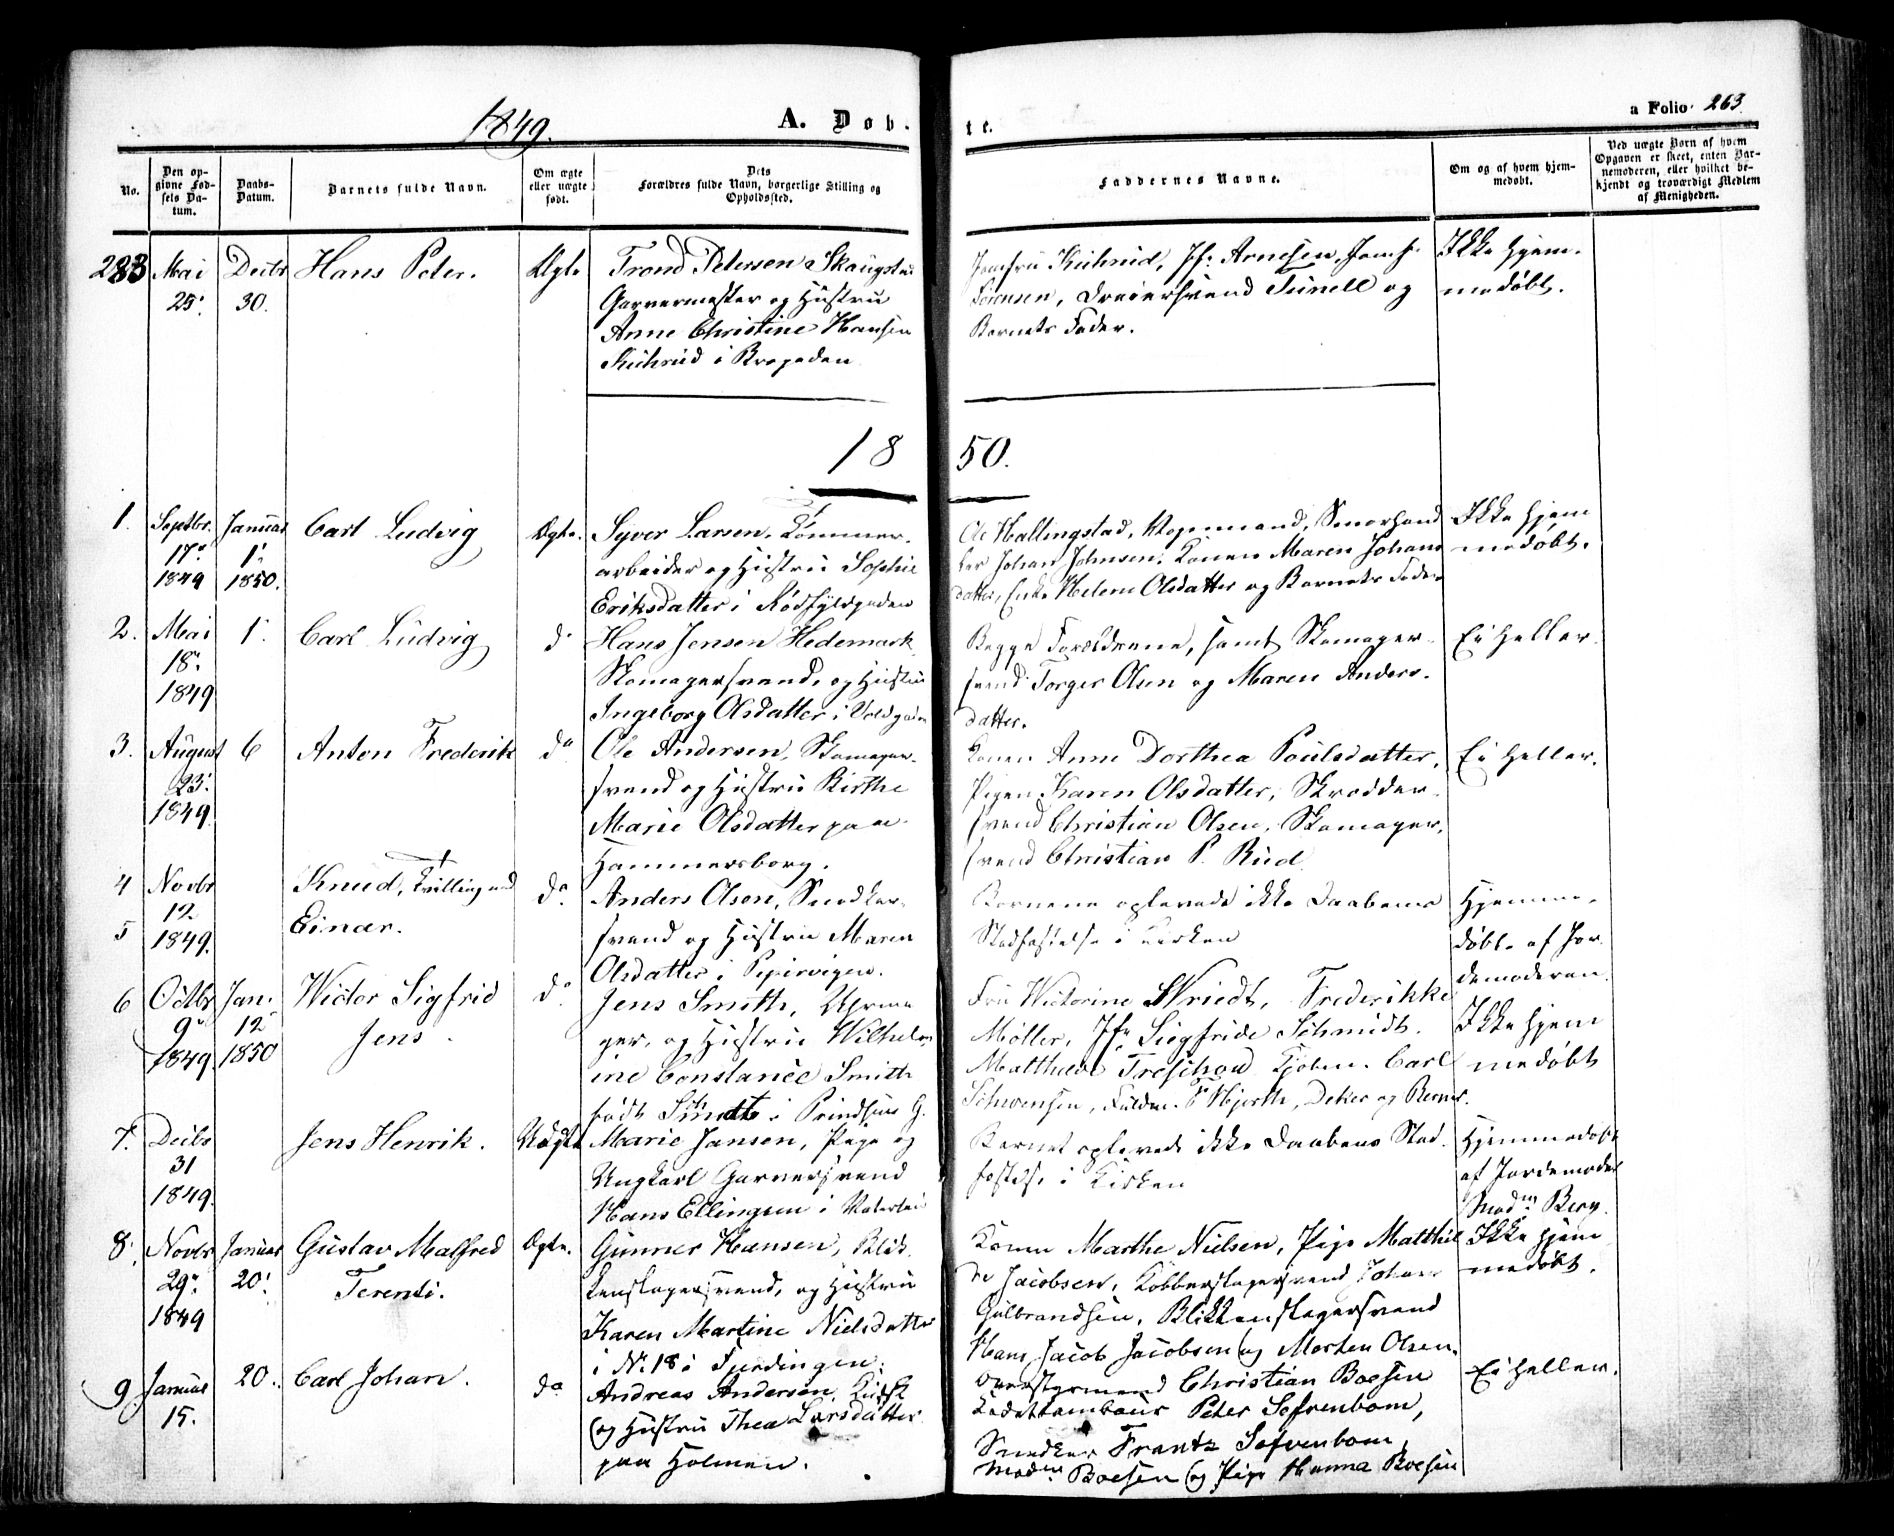 1849.
A. Døb-
te.
a Folio 263
No.
Den op-
givne Fød-
sels Da-
tum.
Daabs-
Datum.
Barnets fulde Navn.
Om ægte
eller uægte
født.
Dets
Forældres fulde Navn, borgerlige Stilling og
Opholdssted.
Faddernes Navne.
Om og af hvem hjem-
medøbt.
Ved uægte Børn af hvem
Opgaven er skeet, enten Bar-
nemoderen, eller hvilket be-
kjendt og troværdigt Medlem
af Menigheden.
283
Mai
25.
Decbr
30.
Hans Peter.
Ægte
Trond Petersen Skaugstad
Garvermester og Hustru
Anne Christine Hansen
i Brogaden
Jomfru
Sørensen, Dreiersvend Tunell og
Barnets Fader.
Ikke hjem-
medøbt.
18 50.
1.
Septbr.
17.
1849
Januar
1.
1850.
Carl Ludvig
Ægte.
Syver Larsen, Tømmer-
arbeider og Hustru Sophie
Eriksdatter i Rødfyldgaden
Ole Hallingstad, Vognmand, Smørhand
ler Johan Johnsen, Konen Maren Johans
datter, Enke Helene Olsdatter og Barnets Fader
Ikke hjem
medøbt.
2.
Mai
18.
1849
1.
Carl Ludvig
do
Hans Jensen Hedemark
Skomagersvend, og Hustru
Ingeborg Olsdatter i Voldgaden
Begge Forældrene, samt Skomager-
svend Torger Olsen og Maren Anders-
datter.
Ei heller.
3.
August
23.
1849
6
Anton Frederik
do
Ole Andersen, Skomager-
svend og Hustru Birthe
Marie Olsdatter paa
Hammersborg.
Konen Anne Dorthea Poulsdatter,
Pigen Karen Olsdatter, Skrædder-
svend Christian Olsen, Skomager-
svend Christian P. Rud
Ei heller.
4
5
Novbr
12
1849.
Knud, Tvilling med
Einar.
do
Anders Olsen, Snedker-
svend og Hustru Maren
Olsdatter i Pipervigen.
Børnene oplevede ikke Daabens
Stadfæstelse i Kirken
Hjemme-
døbte af Jor-
demoderen.
6
Octbr
9
1849.
Jan.
12
1850
Victor Sigfrid
Jens.
do
Jens Smith,
og Hustru Wilhelm
ine Constance Smith
født i Prindsens G.
Fru Victorine Wriedt, Frederikke
Møller, Jfr Siegfride Schmidt.
Matthæa Treschow Kjøbm. Carl
Schwensen, Hjorth,
Ikke hjem
medøbt
7.
Decbr
31
1849.
Jens Henrik.
Uægte
Marie Jansen, Pige og
Ungkarl Garversvend
Hans Ellingsen i Vaterland
Barnet oplevede ikke Daabens Stad-
fæstelse i Kirken
Hjemmedøbt
af Jordemoder
Madm Berg.
8.
Novbr
29
1849
Januar
20.
Gustav Malfred
Terenti.
Ægte.
Gunner Hansen, Blik-
kenslagersvend, og Hustru
Karen Martine Nielsdatter
i No 18 i Fjerdingen.
Konen Marthe Nielsen, Pige Mathil
de Jacobsen, Kobberslagersvend Johan
Gulbrandsen, Blikkenslagersvend
Hans Jacob Jacobsen og Morten Olsen.
Ikke hjem
medøbt.
9
Januar
15.
20.
Carl Johan.
do
Andreas Andersen, Kudsk
og Hustru Thea Larsdatter
paa Holmen.
Overstyrmand Christian Boesen
Kadettambour Peter Sefvenbom,
Snedker Frantz Sefvenbom,
Madm Boesen og Pige Hanna Boesen
Ei heller.